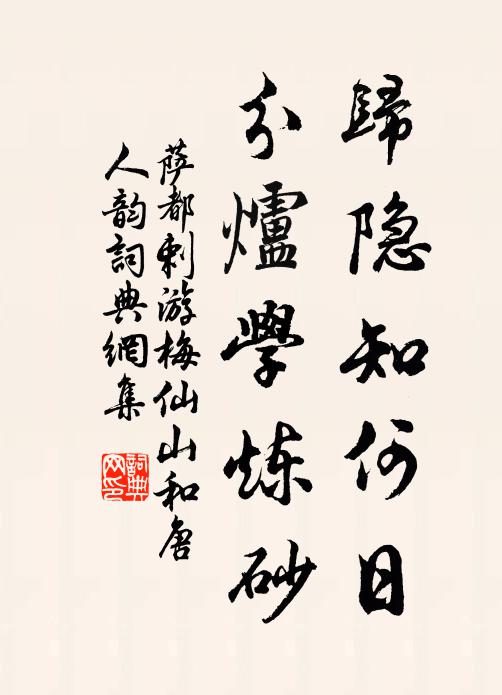 歸隐知何日
分爐學炼砂
萨都剌游梅仙山和唐
人韵詞典網集
詞典网印